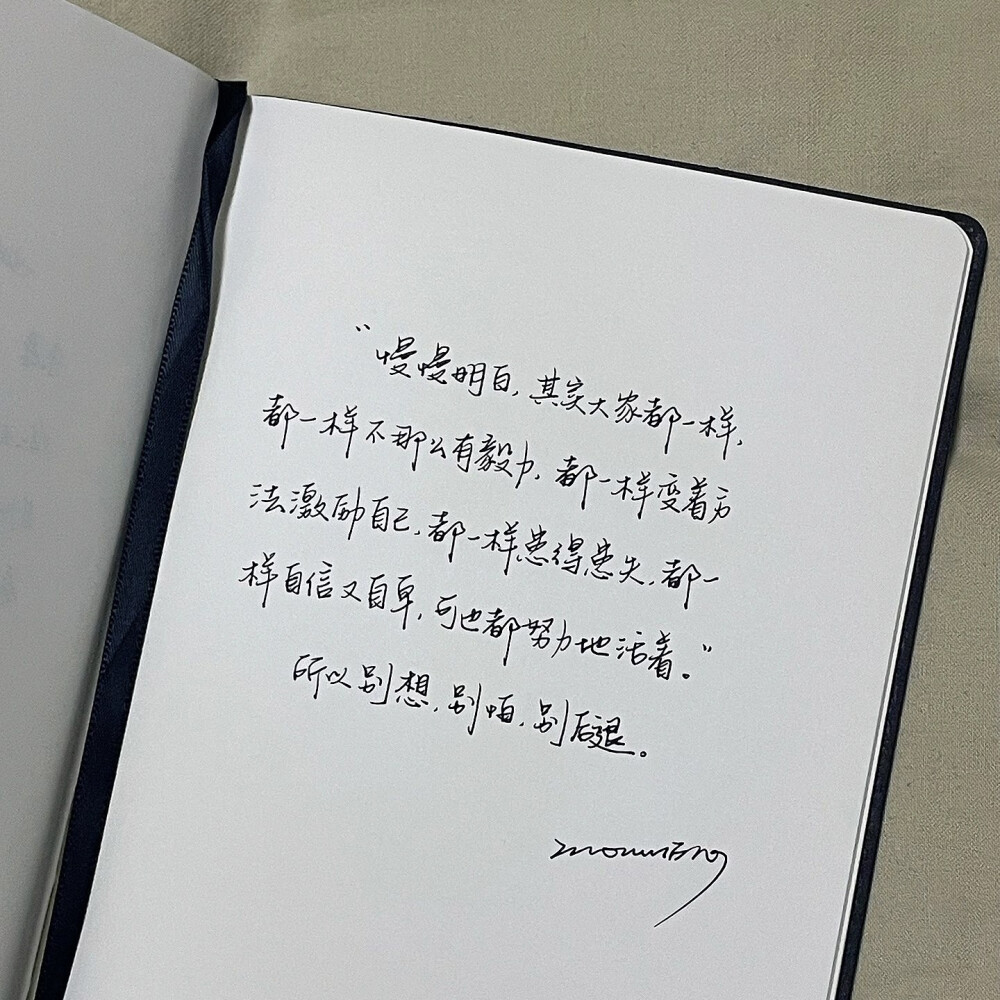 “慢慢明白,其实大家都一样,
都一样不那么有毅力,都一样变着方
法激励自己,都一样患得患失,都一
样自信又自卑,可也都努力地活着。”
所以别想,别怕,别后退。